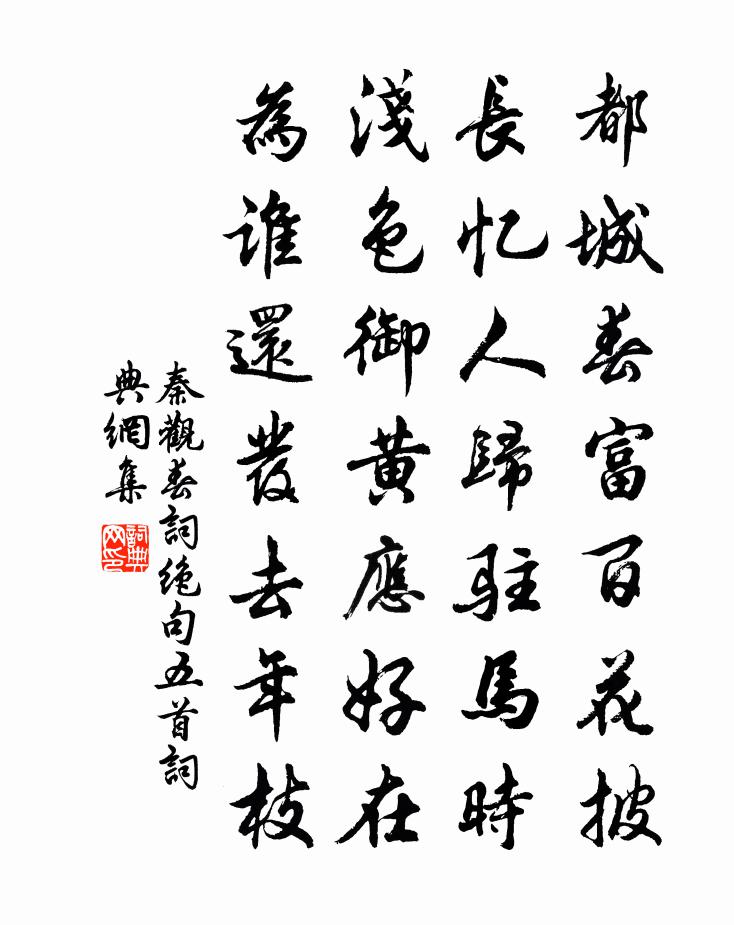 都城春富百花披
長忆人歸駐馬時
淺色御黄應好在
為誰還發去年枝
秦觀春詞絶句五首詞
典網集
詞典網印